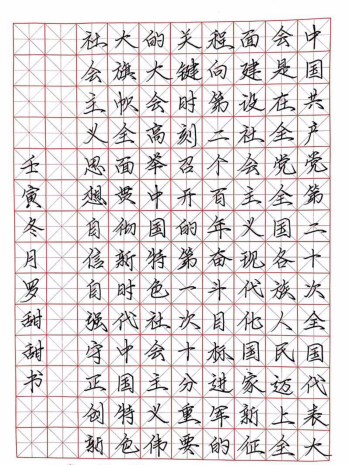 中国共产党第二十次全国代表大
会是在全党全国各族人民迈上全
面建设社会主义现代化国家新征
程向第二个百年奋斗目标进军的
关键时刻召开的第一次十分重要
的大会高举中国特色社会主义伟
大旗帜全面贯彻新时代中国特色
社会主义思想自信自强守正创新
壬寅冬月罗甜甜书